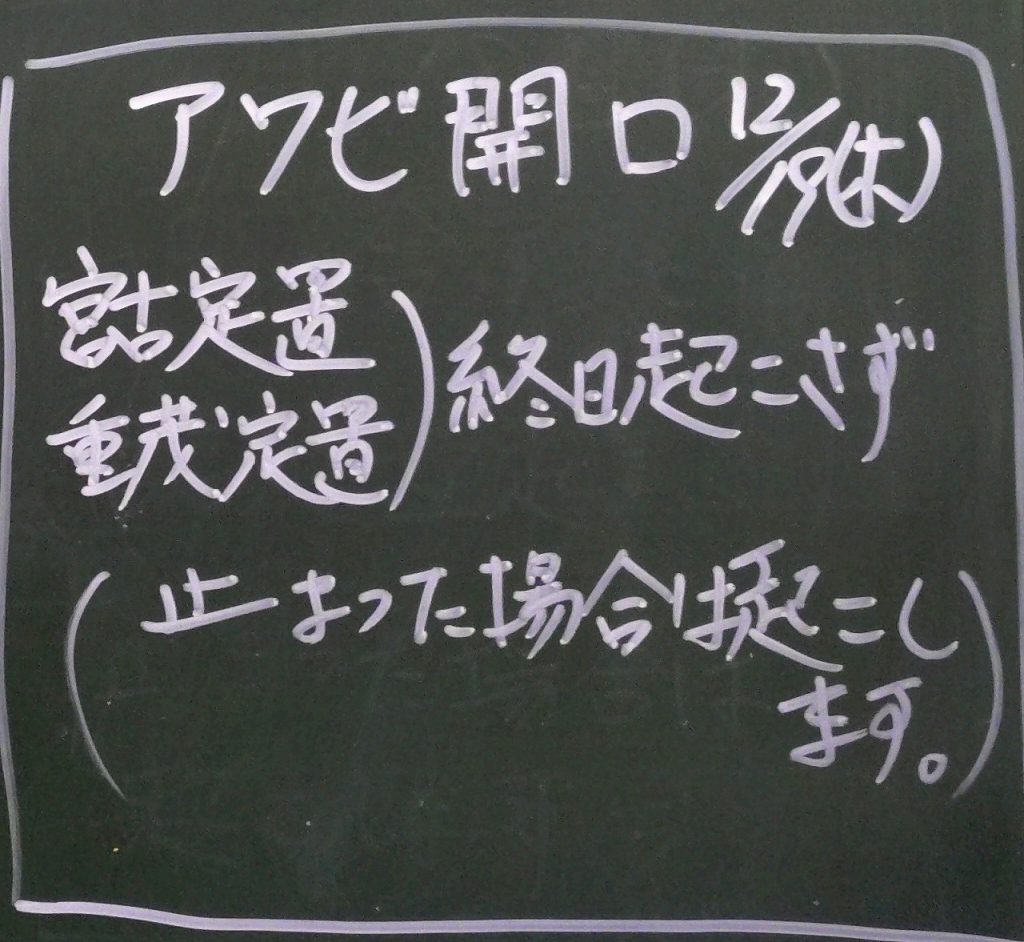 アワビ開口 12/19(木)
宮古定置
重茂定置
)終日起こさず
(止まった場合は起こし
ます。)